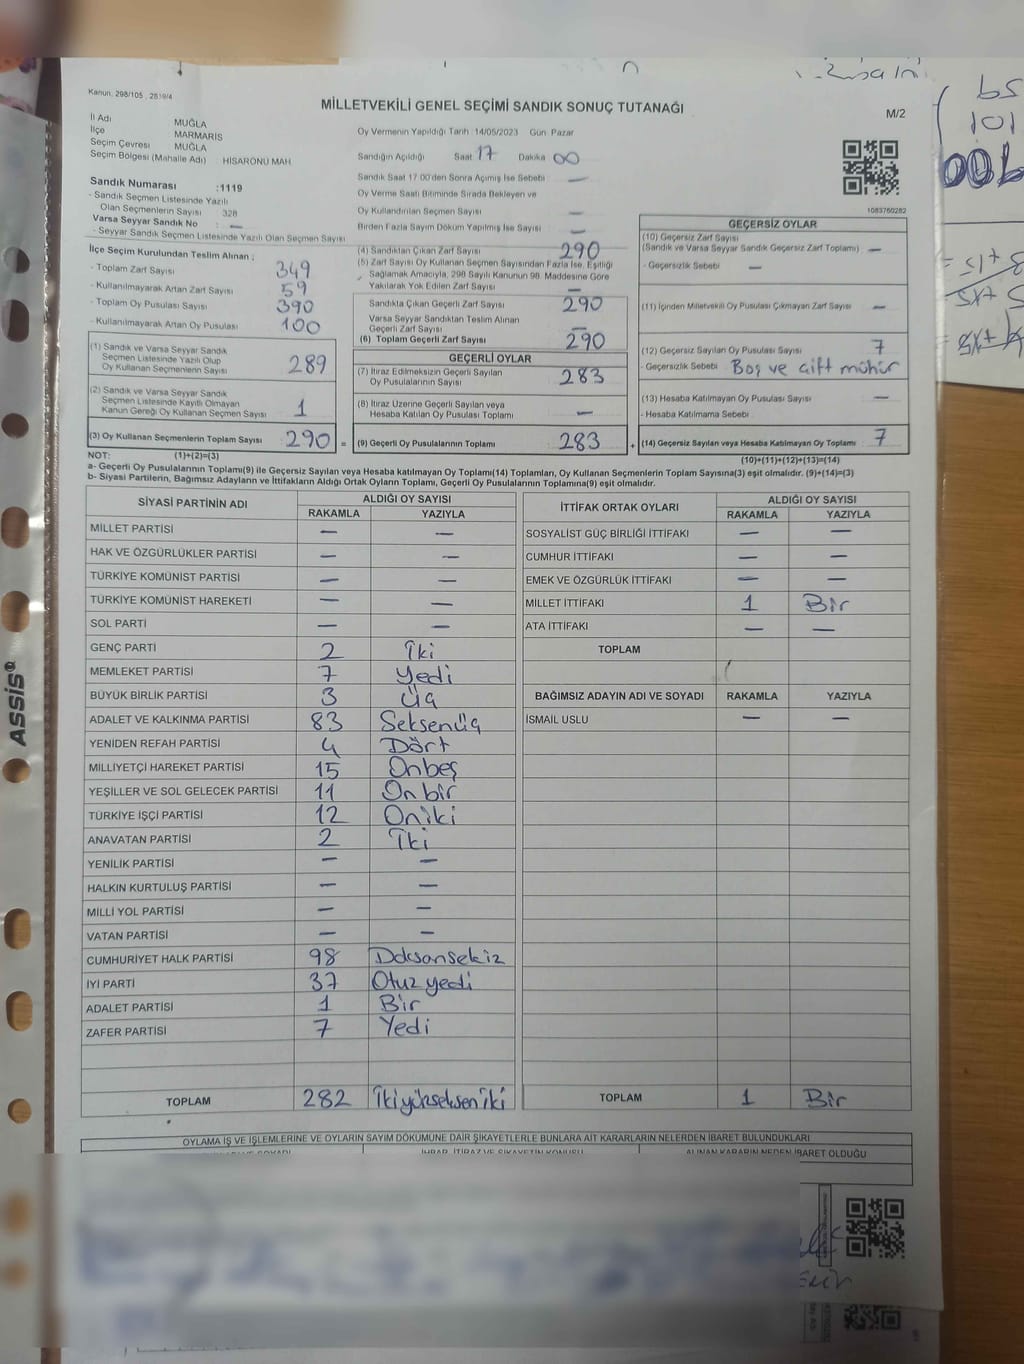 Kanun, 298/105 , 2839/4
MİLLETVEKİLİ GENEL SEÇİMİ SANDIK SONUÇ TUTANAĞI
M/2
İl Adı MUĞLA
İlçe MARMARİS
Seçim Çevresi MUĞLA
Seçim Bölgesi (Mahalle Adı) HİSARÖNÜ MAH
Sandık Numarası :1119
- Sandık Seçmen Listesinde Yazılı
Olan Seçmenlerin Sayısı 328
Varsa Seyyar Sandık No : —
- Seyyar Sandık Seçmen Listesinde Yazılı Olan Seçmen Sayısı
Oy Vermenin Yapıldığı Tarih :14/05/2023 Gün Pazar
Sandığın Açıldığı Saat 17 Dakika 00
Sandık Saat 17 00'den Sonra Açımış İse Sebebi —
Oy Verme Saati Bitiminde Sırada Bekleyen ve
Oy Kullandırılan Seçmen Sayısı —
Birden Fazla Sayım Döküm Yapılmış İse Sayısı —
1083760282
İlçe Seçim Kurulundan Teslim Alınan ;
- Toplam Zarf Sayısı 349
- Kullanılmayarak Artan Zarf Sayısı 59
- Toplam Oy Pusulası Sayısı 390
- Kullanılmayarak Artan Oy Pusulası 100
(1) Sandık ve Varsa Seyyar Sandık
Seçmen Listesinde Yazılı Olup
Oy Kullanan Seçmenlerin Sayısı 289
(2) Sandık ve Varsa Seyyar Sandık
Seçmen Listesinde Kayıtlı Olmayan
Kanun Gereği Oy Kullanan Seçmen Sayısı 1
(3) Oy Kullanan Seçmenlerin Toplam Sayısı 290 =
(4) Sandıktan Çıkan Zarf Sayısı 290
(5) Zarf Sayısı Oy Kullanan Seçmen Sayısından Fazla İse, Eşitliği
Sağlamak Amacıyla, 298 Sayılı Kanunun 98. Maddesine Göre
Yakılarak Yok Edilen Zarf Sayısı —
Sandıkta Çıkan Geçerli Zarf Sayısı 290
Varsa Seyyar Sandıktan Teslim Alınan
Geçerli Zarf Sayısı —
(6) Toplam Geçerli Zarf Sayısı 290
GEÇERLİ OYLAR
(7) İtiraz Edilmeksizin Geçerli Sayılan
Oy Pusulalarının Sayısı 283
(8) İtiraz Üzerine Geçerli Sayılan veya
Hesaba Katılan Oy Pusulası Toplamı —
(9) Geçerli Oy Pusulalarının Toplamı 283 +
GEÇERSİZ OYLAR
(10) Geçersiz Zarf Sayısı
(Sandık ve Varsa Seyyar Sandık Geçersiz Zarf Toplamı) —
- Geçersizlik Sebebi —
(11) İçinden Milletvekili Oy Pusulası Çıkmayan Zarf Sayısı —
(12) Geçersiz Sayılan Oy Pusulası Sayısı 7
- Geçersizlik Sebebi Boş ve çift mühür
(13) Hesaba Katılmayan Oy Pusulası Sayısı —
- Hesaba Katılmama Sebebi
(14) Geçersiz Sayılan veya Hesaba Katılmayan Oy Toplamı 7
NOT: (1)+(2)=(3) (10)+(11)+(12)+(13)=(14)
a- Geçerli Oy Pusulalarının Toplamı(9) ile Geçersiz Sayılan veya Hesaba katılmayan Oy Toplamı(14) Toplamları, Oy Kullanan Seçmenlerin Toplam Sayısına(3) eşit olmalıdır. (9)+(14)=(3)
b- Siyasi Partilerin, Bağımsız Adayların ve İttifakların Aldığı Ortak Oyların Toplamı, Geçerli Oy Pusulalarının Toplamına(9) eşit olmalıdır.
SİYASİ PARTİNİN ADI ALDIĞI OY SAYISI
RAKAMLA YAZIYLA
MİLLET PARTİSİ — —
HAK VE ÖZGÜRLÜKLER PARTİSİ — —
TÜRKİYE KOMÜNİST PARTİSİ — —
TÜRKİYE KOMÜNİST HAREKETİ — —
SOL PARTİ — —
GENÇ PARTİ 2 İki
MEMLEKET PARTİSİ 7 Yedi
BÜYÜK BİRLİK PARTİSİ 3 Üç
ADALET VE KALKINMA PARTİSİ 83 Seksenüç
YENİDEN REFAH PARTİSİ 4 Dört
MİLLİYETÇİ HAREKET PARTİSİ 15 Onbeş
YEŞİLLER VE SOL GELECEK PARTİSİ 11 On bir
TÜRKİYE İŞÇİ PARTİSİ 12 Oniki
ANAVATAN PARTİSİ 2 İki
YENİLİK PARTİSİ — —
HALKIN KURTULUŞ PARTİSİ — —
MİLLİ YOL PARTİSİ — —
VATAN PARTİSİ — —
CUMHURİYET HALK PARTİSİ 98 Doksansekiz
İYİ PARTİ 37 Otuz yedi
ADALET PARTİSİ 1 Bir
ZAFER PARTİSİ 7 Yedi
TOPLAM 282 İkiyükseksen iki
İTTİFAK ORTAK OYLARI ALDIĞI OY SAYISI
RAKAMLA YAZIYLA
SOSYALİST GÜÇ BİRLİĞİ İTTİFAKI — —
CUMHUR İTTİFAKI — —
EMEK VE ÖZGÜRLÜK İTTİFAKI — —
MİLLET İTTİFAKI 1 Bir
ATA İTTİFAKI — —
TOPLAM
BAĞIMSIZ ADAYIN ADI VE SOYADI RAKAMLA YAZIYLA
İSMAİL USLU — —
TOPLAM 1 Bir
OYLAMA İŞ VE İŞLEMLERİNE VE OYLARIN SAYIM DÖKÜMÜNE DAİR ŞİKAYETLERLE BUNLARA AİT KARARLARIN NELERDEN İBARET BULUNDUKLARI
ALINAN KARARIN NEDEN İBARET OLDUĞU
ASSİS®